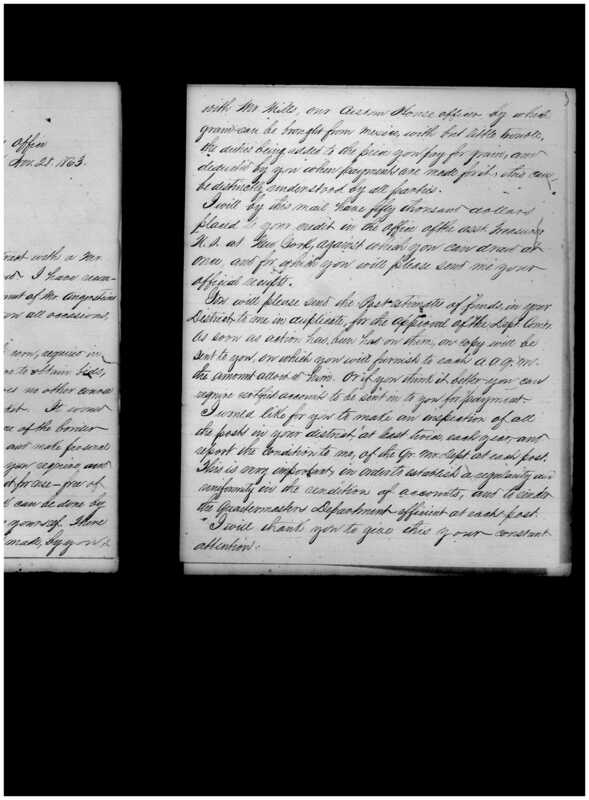 Office
28. 1863.
with a Mr.
I have
of Mr
on all occasions,
now, require in
to obtain bids,
no other
It would
of the border
and make personal
you require, and
for use - free of
can be done by
yourself. I have
made, by you &
3
with Mr Mills, our Custom House officer by which
grain can be brought from Mexico, with but little trouble,
the duties being added to the price you pay for grain, and
deducted by you when payments are made for it, this can
be distinctly understood by all parties.
I will by this mail have fifty thousand dollars
placed to your credit in the office of the asst Treasurer
U.S. at New York, against which you can draw at
once, and for which you will please send me your
official receipts.
You will please send the Post estimates of funds, in your
District, to me in duplicate, for the approval of the Dept
As soon as action has been had on them, one copy will be
sent to you, on which you will furnish to each a a q. m.
the amount allowed him. Or if you think it better you can
require receipted accounts to be sent in to you for payment.
I would like for you to make an inspection of all
the posts in your district, at least twice each year, and
report the condition to me, of the Qr. Mr. Dept at each post.
This is very important, in order to establish a regularity and
uniformity in the rendition of accounts, and to render
the Quartermasters Department efficient at each post.
I will thank you to give this your constant
attention.